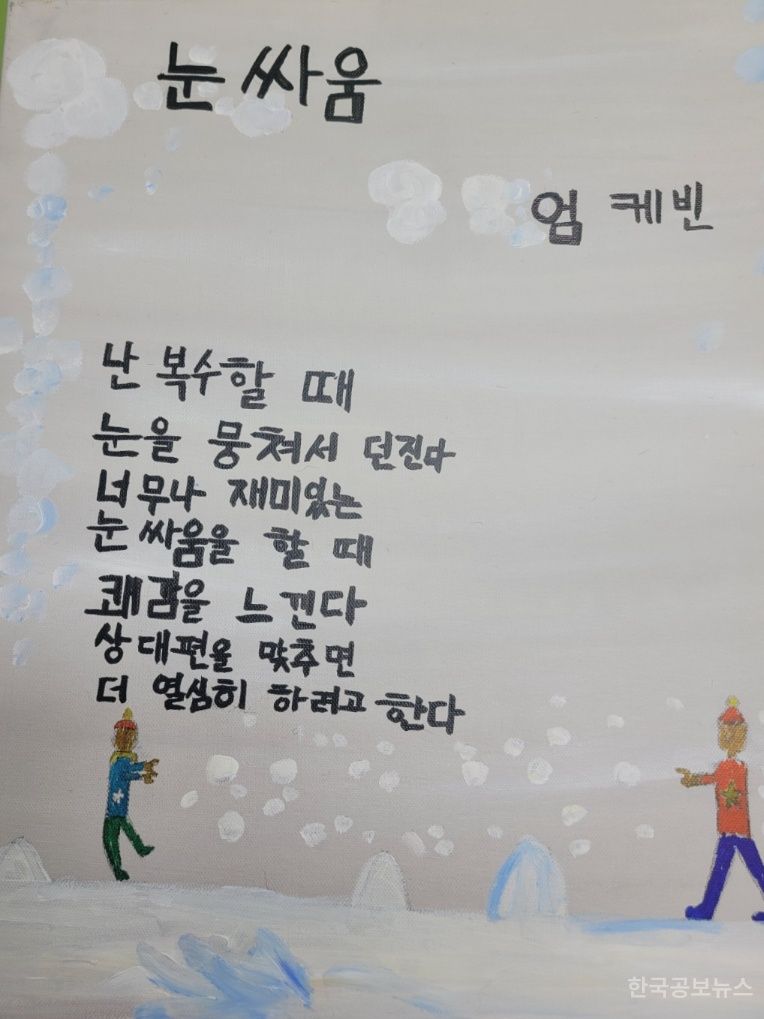 눈싸움
엄케빈
난 복수할 때
눈을 뭉쳐서 던진다
너무나 재미있는
눈싸움을 할 때
쾌감을 느낀다
상대편을 맞추면
더 열심히 하려고 한다
한국공보뉴스